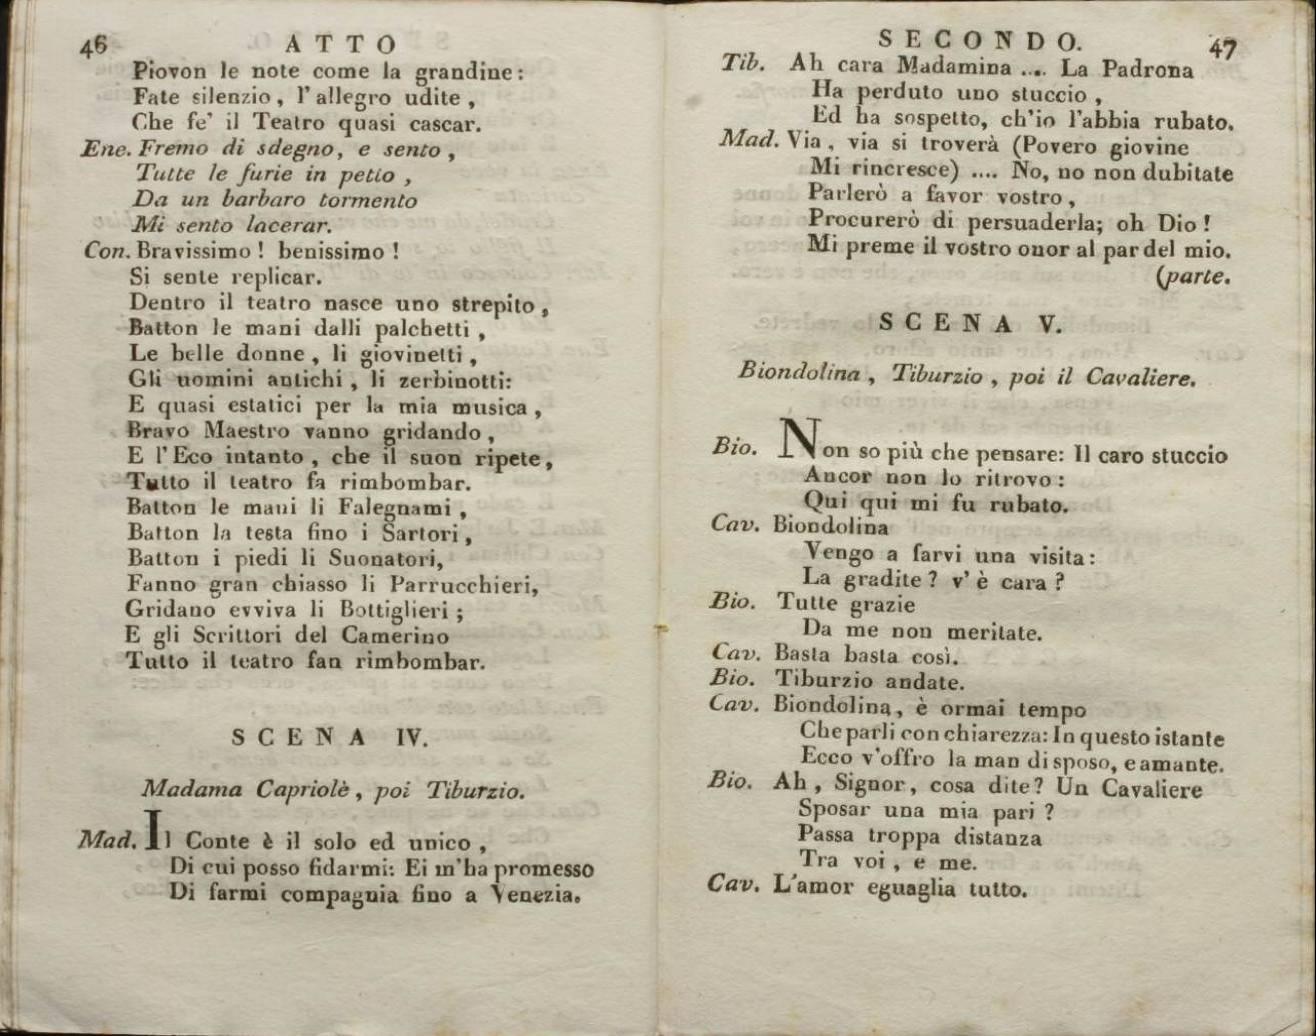 46 ATTO
Piovon le note come la grandine:
Fate silenzio, l'allegro udite,
Che fe' il Teatro quasi cascar.
Ene. Fremo di sdegno, e sento,
Tutte le furie in petto,
Da un barbaro tormento
Mi sento lacerar.
Con. Bravissimo! benissimo!
Si sente replicar.
Dentro il teatro nasce uno strepito,
Batton le mani dalli palchetti,
Le belle donne, li giovinetti,
Gli uomini antichi, li zerbinotti:
E quasi estatici per la mia musica,
Bravo Maestro vanno gridando,
E l'Eco intanto, che il suon ripete,
Tutto il teatro fa rimbombar.
Batton le mani li Falegnami,
Batton la testa fino i Sartori,
Batton i piedi li Suonatori,
Fanno gran chiasso li Parrucchieri,
Gridano evviva li Bottiglieri;
E gli Scrittori del Camerino
Tutto il teatro fan rimbombar.
SCENA IV.
Madama Capriolè, poi Tiburzio.
Mad. Il Conte è il solo ed unico,
Di cui posso fidarmi: Ei m'ha promesso
Di farmi compagnia fino a Venezia.
SECONDO. 47
Tib. Ah cara Madamina .... La Padrona
Ha perduto uno stuccio,
Ed ha sospetto, ch'io l'abbia rubato.
Mad. Via, via si troverà (Povero giovine
Mi rincresce) .... No, no non dubitate
Parlerò a favor vostro,
Procurerò di persuaderla; oh Dio!
Mi preme il vostro onor al par del mio.
(parte.
SCENA V.
Biondolina, Tiburzio, poi il Cavaliere.
Bio. Non so più che pensare: Il caro stuccio
Ancor non lo ritrovo:
Qui qui mi fu rubato.
Cav. Biondolina
Vengo a farvi una visita:
La gradite? v'è cara?
Bio. Tutte grazie
Da me non meritate.
Cav. Basta basta così.
Bio. Tiburzio andate.
Cav. Biondolina, è ormai tempo
Che parli con chiarezza: In questo istante
Ecco v'offro la man di sposo, e amante.
Bio. Ah, Signor, cosa dite? Un Cavaliere
Sposar una mia pari?
Passa troppa distanza
Tra voi, e me.
Cav. L'amor eguaglia tutto.